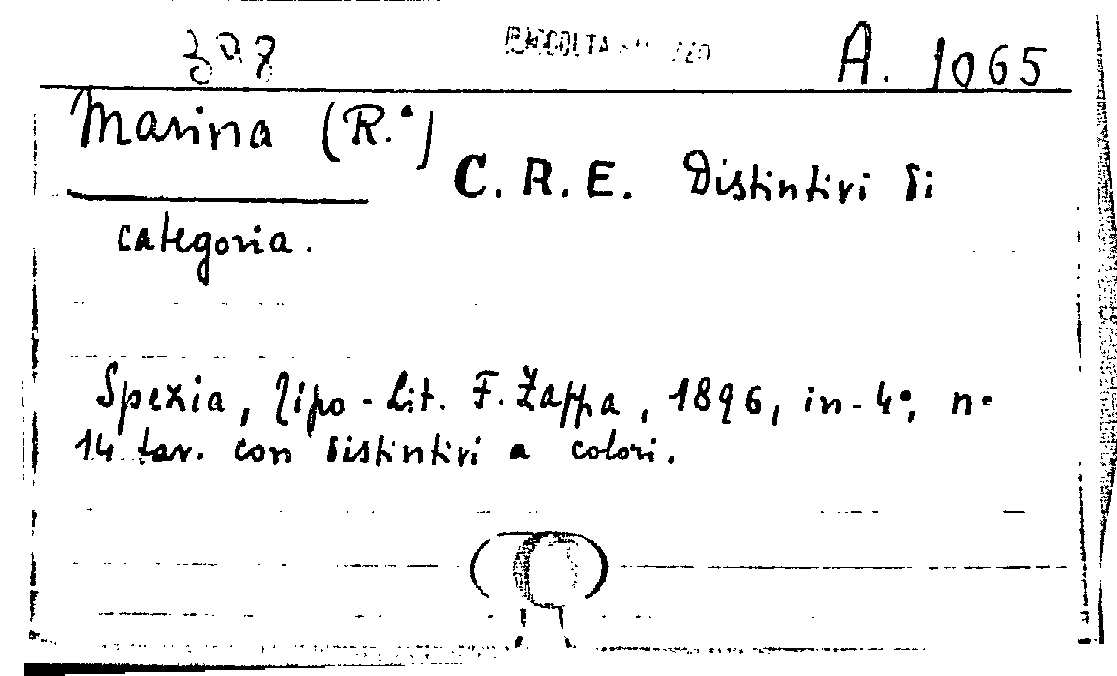 308 A. 1065
Marina (R.ª)
C. R. E. Distintivi di
categoria.
Spezia, Tipo-Lit. F. Zappa, 1896, in-4°, n°
14 tav. con distintivi a colori.